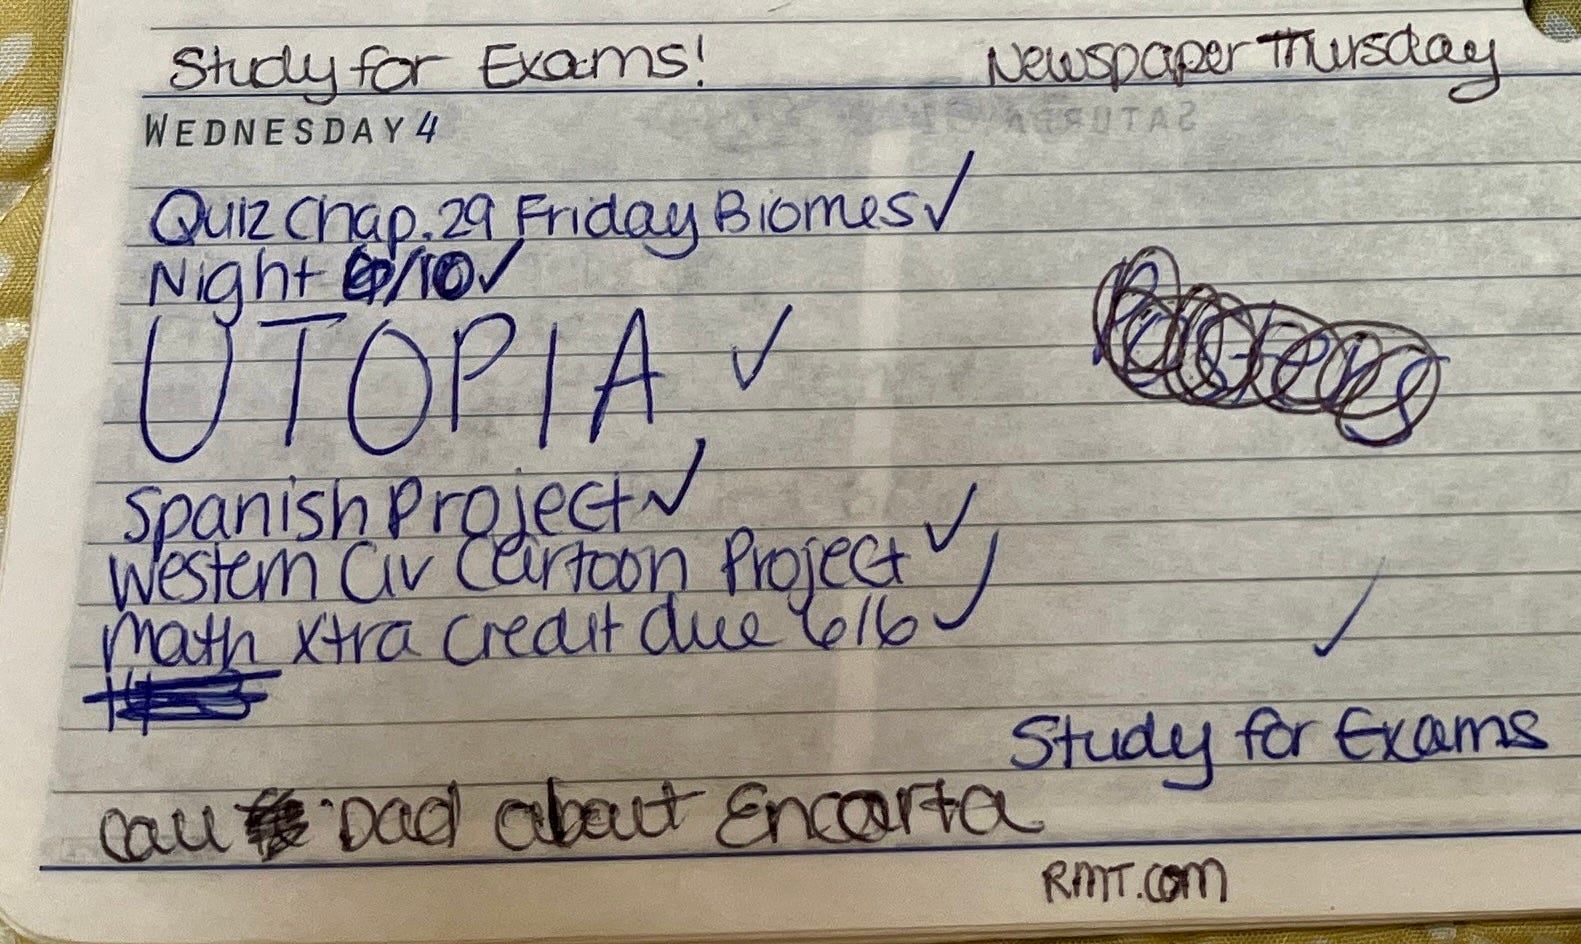 Study for Exams! Newspaper Thursday
WEDNESDAY 4
Quiz Chap. 29 Friday Biomes ✓
Night 6/10 ✓
UTOPIA ✓
Posters
Spanish Project ✓
Western Civ Cartoon Project ✓
Math Xtra Credit due 6/6 ✓
✓
Study for Exams
Call Dad about Encarta
RMT.com